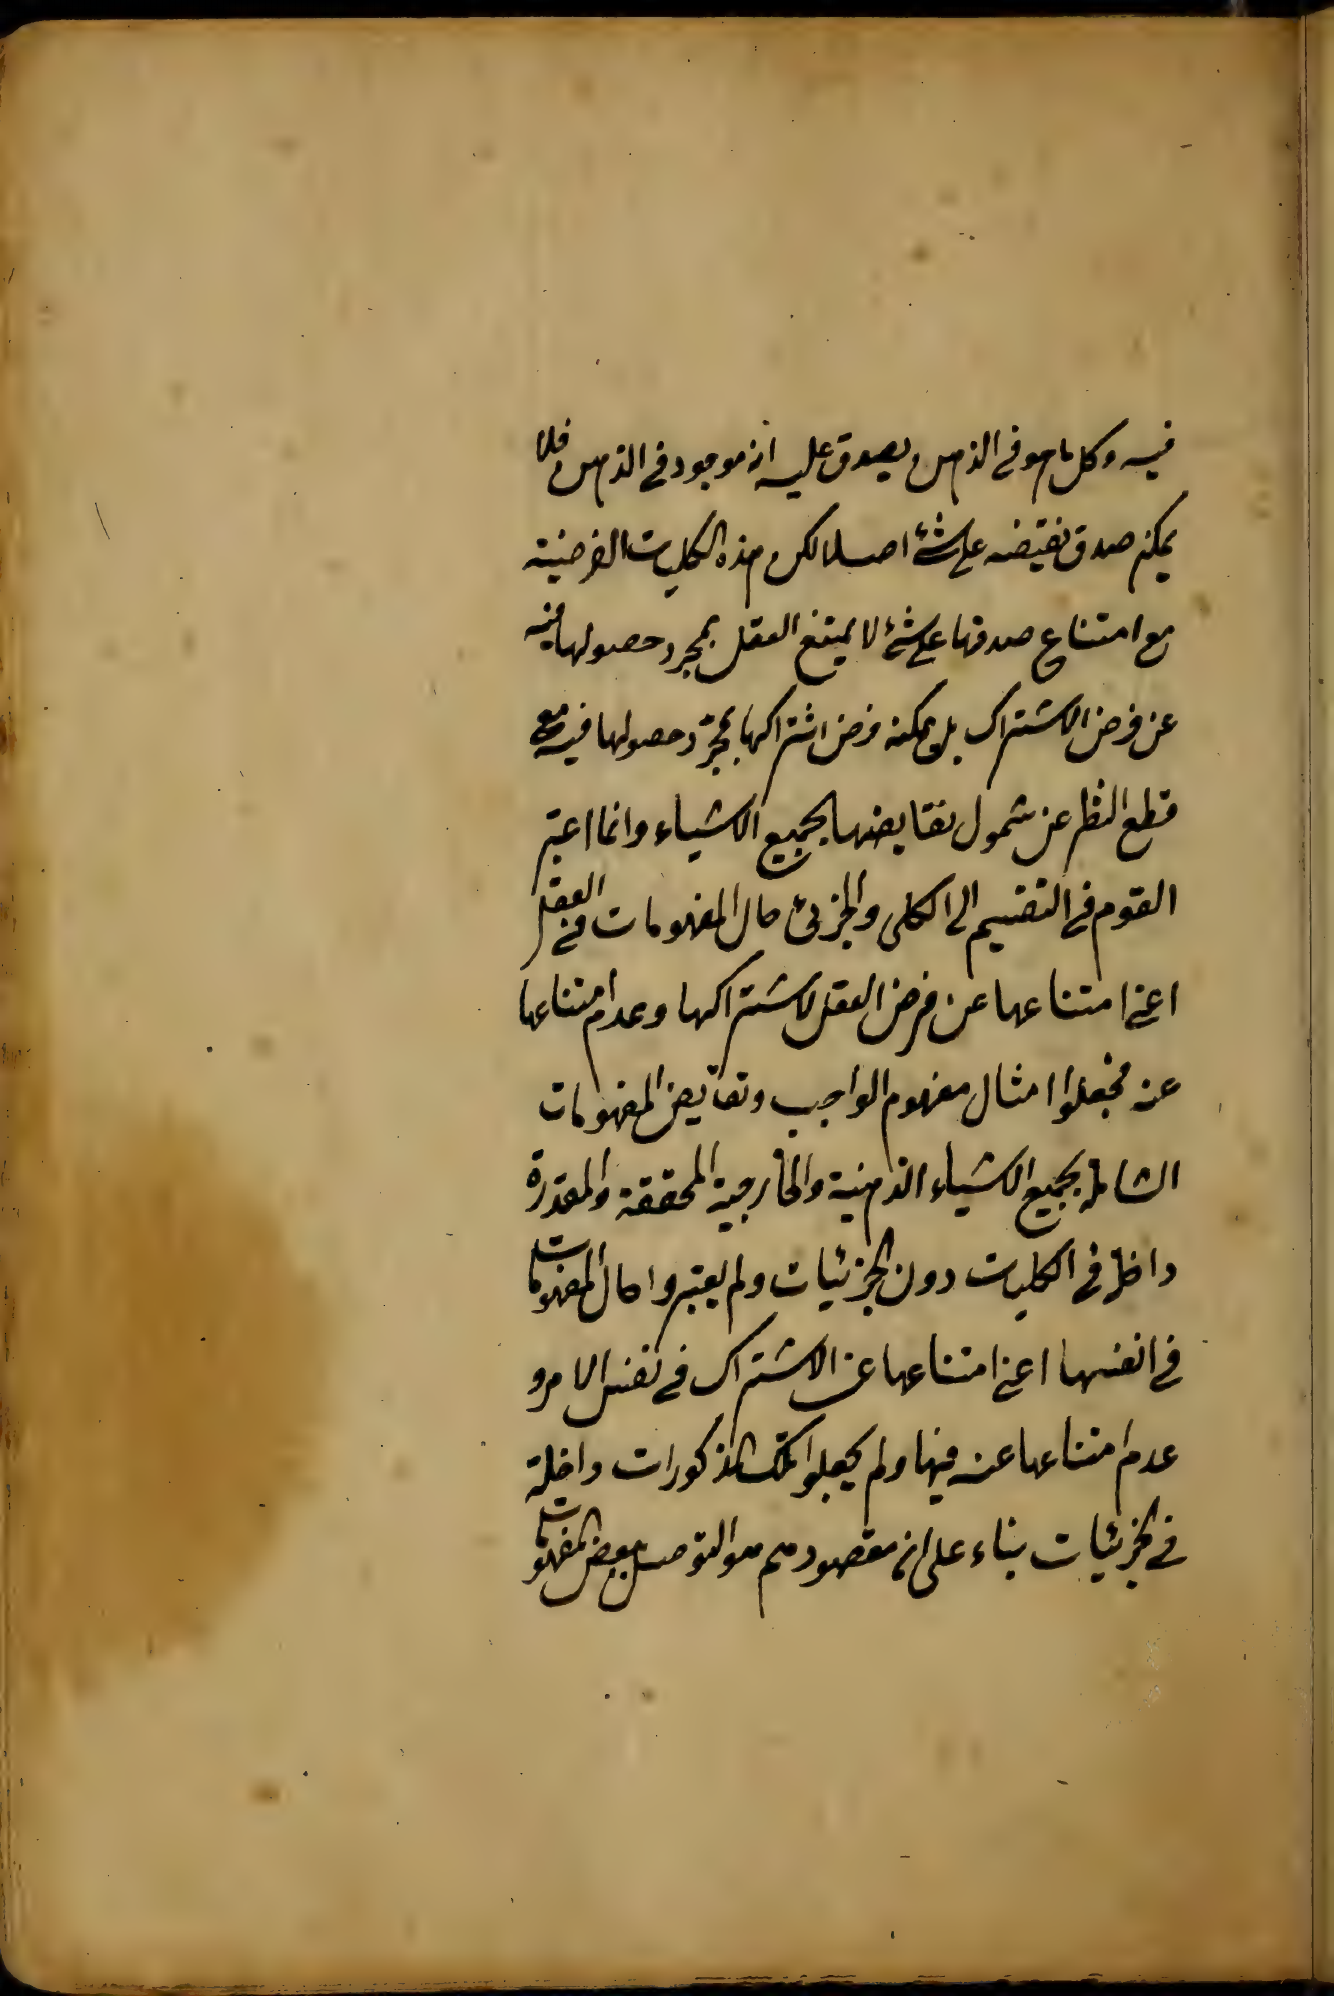 فيه وكل ما هو في الذهن يصدق عليه انه موجود في الذهن فلا
يمكن صدق نقيضه على شئ اصلا لكن هذه الكليات الفرضية
مع امتناع صدقها على شئ لا يمتنع العقل بمجرد حصولها فيه
عن فرض الاشتراك بل يمكنه فرض اشتراكها بمجرد حصولها فيه مع
قطع النظر عن شمول نقايضها لجميع الاشياء وانما اعتبر
القوم في التقسيم الى الكلى والجزئ حال المفهومات في العقل
اعني امتناعها عن فرض العقل لاشتراكها وعدم امتناعها
عنه فجعلوا امثال مفهوم الواجب ونقايض المفهومات
الشاملة لجميع الاشياء الذهنية والخارجية المحققة والمقدرة
داخلة في الكليات دون الجزئيات ولم يعتبروا حال المفهومات
في انفسها اعني امتناعها عن الاشتراك في نفس الامر و
عدم امتناعها عنه فيها ولم يجعلوا تلك المذكورات داخلة
في الجزئيات بناء على ان مقصودهم هو التوصل ببعض المفهومات